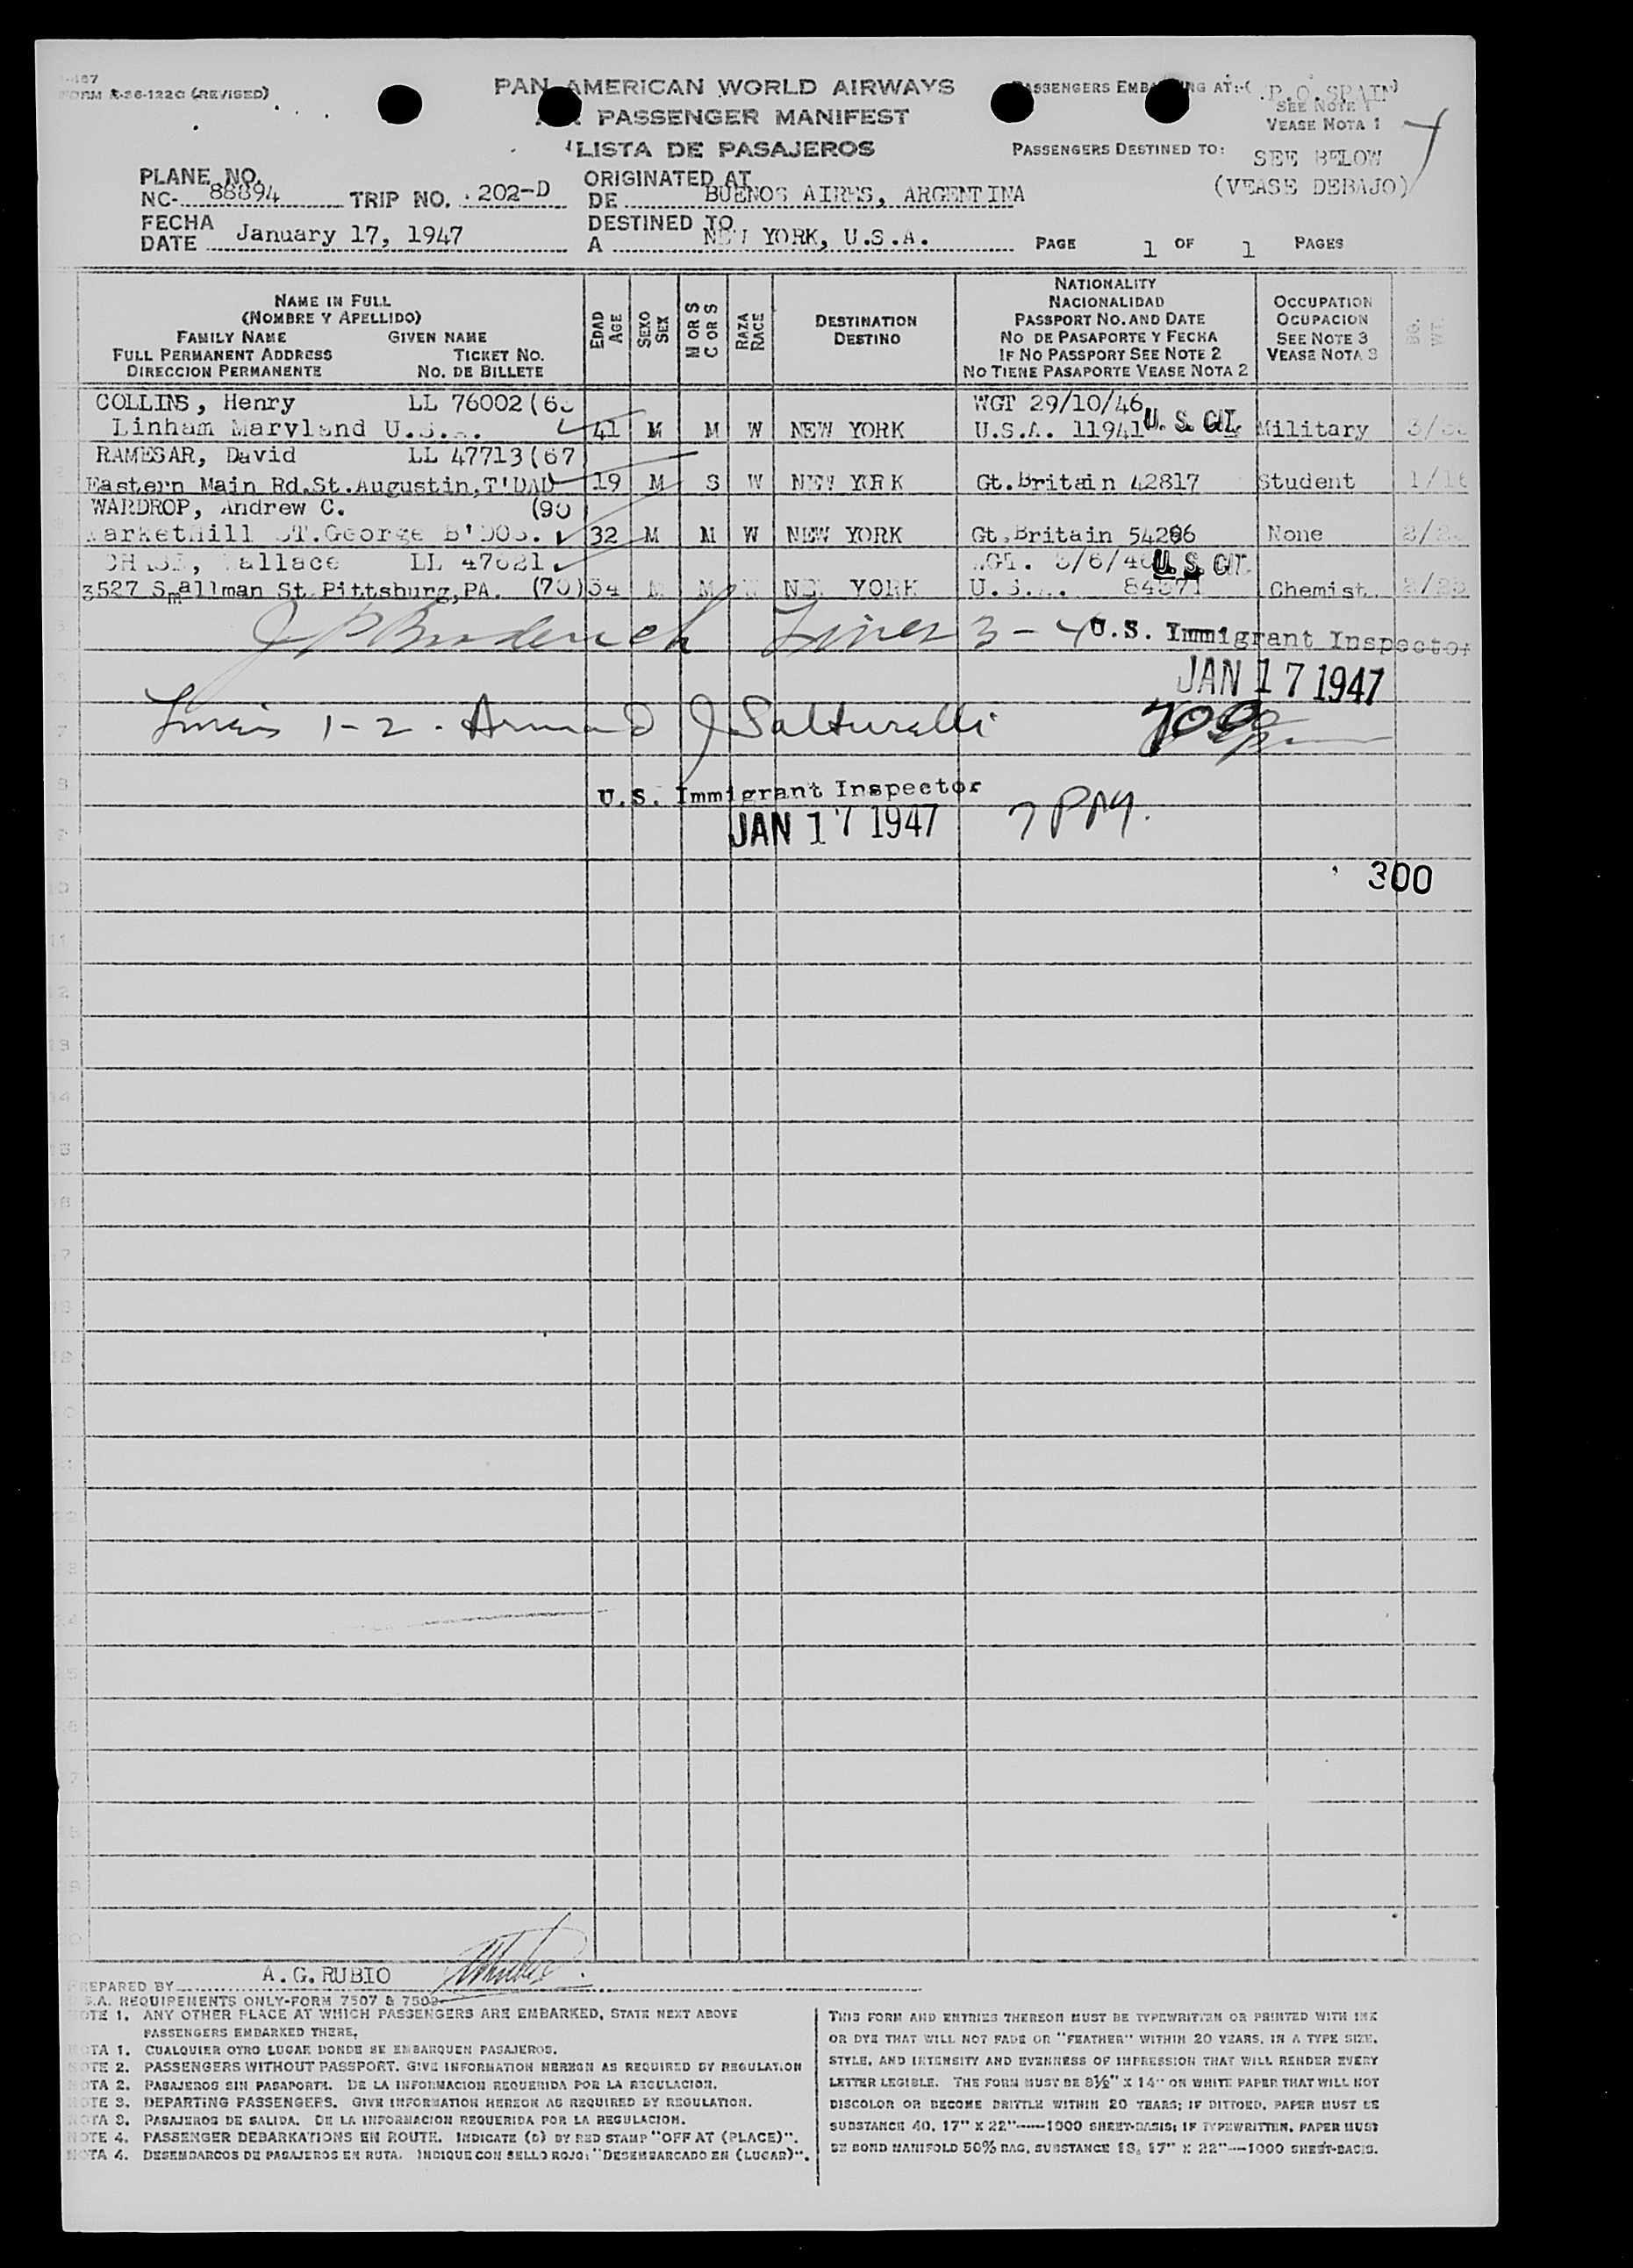 FORM R-26-122C (REVISED)
PAN AMERICAN WORLD AIRWAYS
PASSENGER MANIFEST
LISTA DE PASAJEROS
PASSENGERS EMB NG AT:-( P.O.SPAIN)
SEE NOTE 1
VEASE NOTA 1
PASSENGERS DESTINED TO: SEE BELOW
(VEASE DEBAJO)
PLANE NO.
NC- 88894 TRIP NO. 202-D
ORIGINATED AT
DE BUENOS AIRES, ARGENTINA
FECHA
DATE January 17, 1947
DESTINED TO
A NEW YORK, U.S.A.
PAGE 1 OF 1 PAGES
NAME IN FULL
(NOMBRE Y APELLIDO)
FAMILY NAME GIVEN NAME
FULL PERMANENT ADDRESS TICKET NO.
DIRECCION PERMANENTE NO. DE BILLETE
EDAD
AGE
SEXO
SEX
M OR S
C OR S
RAZA
RACE
DESTINATION
DESTINO
NATIONALITY
NACIONALIDAD
PASSPORT NO. AND DATE
NO DE PASAPORTE Y FECHA
IF NO PASSPORT SEE NOTE 2
NO TIENE PASAPORTE VEASE NOTA 2
OCCUPATION
OCUPACION
SEE NOTE 3
VEASE NOTA 3
COLLINS, Henry LL 76002 WGT 29/10/46
Linham Maryland U.S.A. 41 M M W NEW YORK U.S.A. 11941 U. S. CIT. Military
RAMESAR, David LL 47713(67
Eastern Main Rd.St.Augustin,T'DAD 19 M S W NEW YORK Gt.Britain 42817 Student
WARDROP, Andrew C. (90
MarketHill ST.George B'DOS. 32 M M W NEW YORK Gt.Britain 54286 None
CHASE, Wallace LL 47621 WGT. 3/6/46 U. S. CIT.
3527 Smallman St Pittsburg,PA. (70) 34 M M W NEW YORK U.S.A. 84571 Chemist
J P Broderick Lines 3-4 U.S. Immigrant Inspector
JAN 17 1947
Lines 1-2 - Armand J Salturelli
U.S. Immigrant Inspector
JAN 17 1947 7 PM.
300
PREPARED BY A.G.RUBIO
U.S.A. REQUIREMENTS ONLY-FORM 7507 & 7509
NOTE 1. ANY OTHER PLACE AT WHICH PASSENGERS ARE EMBARKED, STATE NEXT ABOVE
PASSENGERS EMBARKED THERE.
NOTA 1. CUALQUIER OTRO LUGAR DONDE SE EMBARQUEN PASAJEROS.
NOTE 2. PASSENGERS WITHOUT PASSPORT. GIVE INFORMATION HEREON AS REQUIRED BY REGULATION
NOTA 2. PASAJEROS SIN PASAPORTE. DE LA INFORMACION REQUERIDA POR LA REGULACION.
NOTE 3. DEPARTING PASSENGERS. GIVE INFORMATION HEREON AS REQUIRED BY REGULATION.
NOTA 3. PASAJEROS DE SALIDA. DE LA INFORMACION REQUERIDA POR LA REGULACION.
NOTE 4. PASSENGER DEBARKATIONS EN ROUTE. INDICATE (D) BY RED STAMP "OFF AT (PLACE)".
NOTA 4. DESEMBARCOS DE PASAJEROS EN RUTA. INDIQUE CON SELLO ROJO: "DESEMBARCADO EN (LUGAR)".
THIS FORM AND ENTRIES THEREON MUST BE TYPEWRITTEN OR PRINTED WITH INK
OR DYE THAT WILL NOT FADE OR "FEATHER" WITHIN 20 YEARS, IN A TYPE SIZE,
STYLE, AND INTENSITY AND EVENNESS OF IMPRESSION THAT WILL RENDER EVERY
LETTER LEGIBLE. THE FORM MUST BE 8½" X 14" ON WHITE PAPER THAT WILL NOT
DISCOLOR OR BECOME BRITTLE WITHIN 20 YEARS; IF DITTOED, PAPER MUST BE
SUBSTANCE 40, 17" X 22"------1000 SHEET-BASIS; IF TYPEWRITTEN, PAPER MUST
BE BOND MANIFOLD 50% RAG, SUBSTANCE 18, 17" X 22"---1000 SHEET-BASIS.